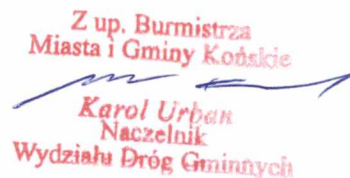 Z up. Burmistrza
Miasta i Gminy Końskie
Karol Urban
Naczelnik
Wydziału Dróg Gminnych